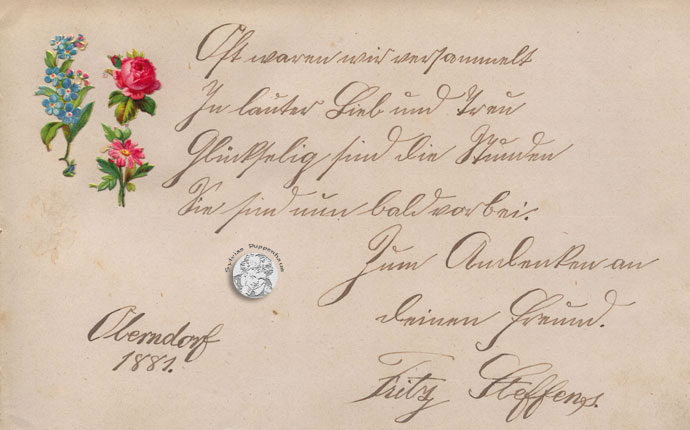 Oft waren wir versammelt
In lauter Lieb und Treu
Glückselig sind die Stunden
Sie sind nun bald vorbei.
Zum Andenken an
deinen Freund.
Fritz Steffens.
Oberndorf
1881.
Sylvias Puppenhaus